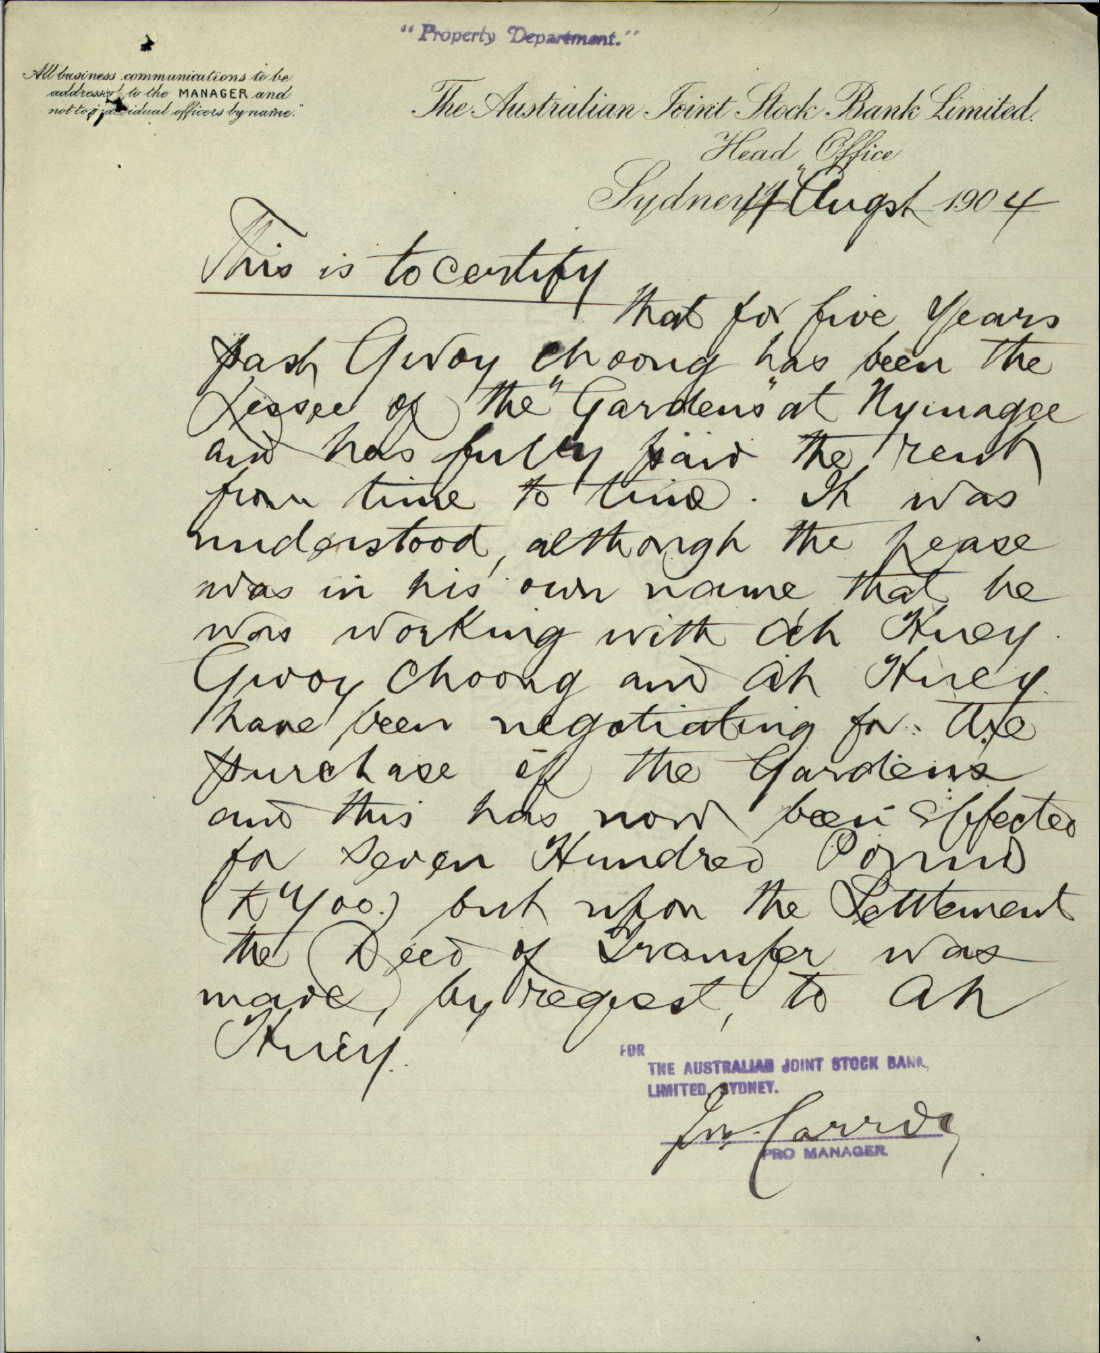 "Property Department."
All business communications to be
addressed to the MANAGER and
not to individual officers by name."
The Australian Joint Stock Bank Limited.
Head Office
Sydney Augst 1904
This is to certify
that for five Years
past Gwoy Choong has been the
Lessee of the "Gardens" at Nymagee
and has fully paid the rent
from time to time. It was
understood, although the Lease
was in his own name that he
was working with Ah Huey.
Gwoy Choong and Ah Huey.
have been negotiating for the
purchase of the Gardens
and this has now been Effected
for Seven Hundred Pound
(£700.) but upon the Settlement
the Deed of Transfer was
made, by request, to Ah
Huey.
FOR
THE AUSTRALIAN JOINT STOCK BANK,
LIMITED, SYDNEY.
PRO MANAGER